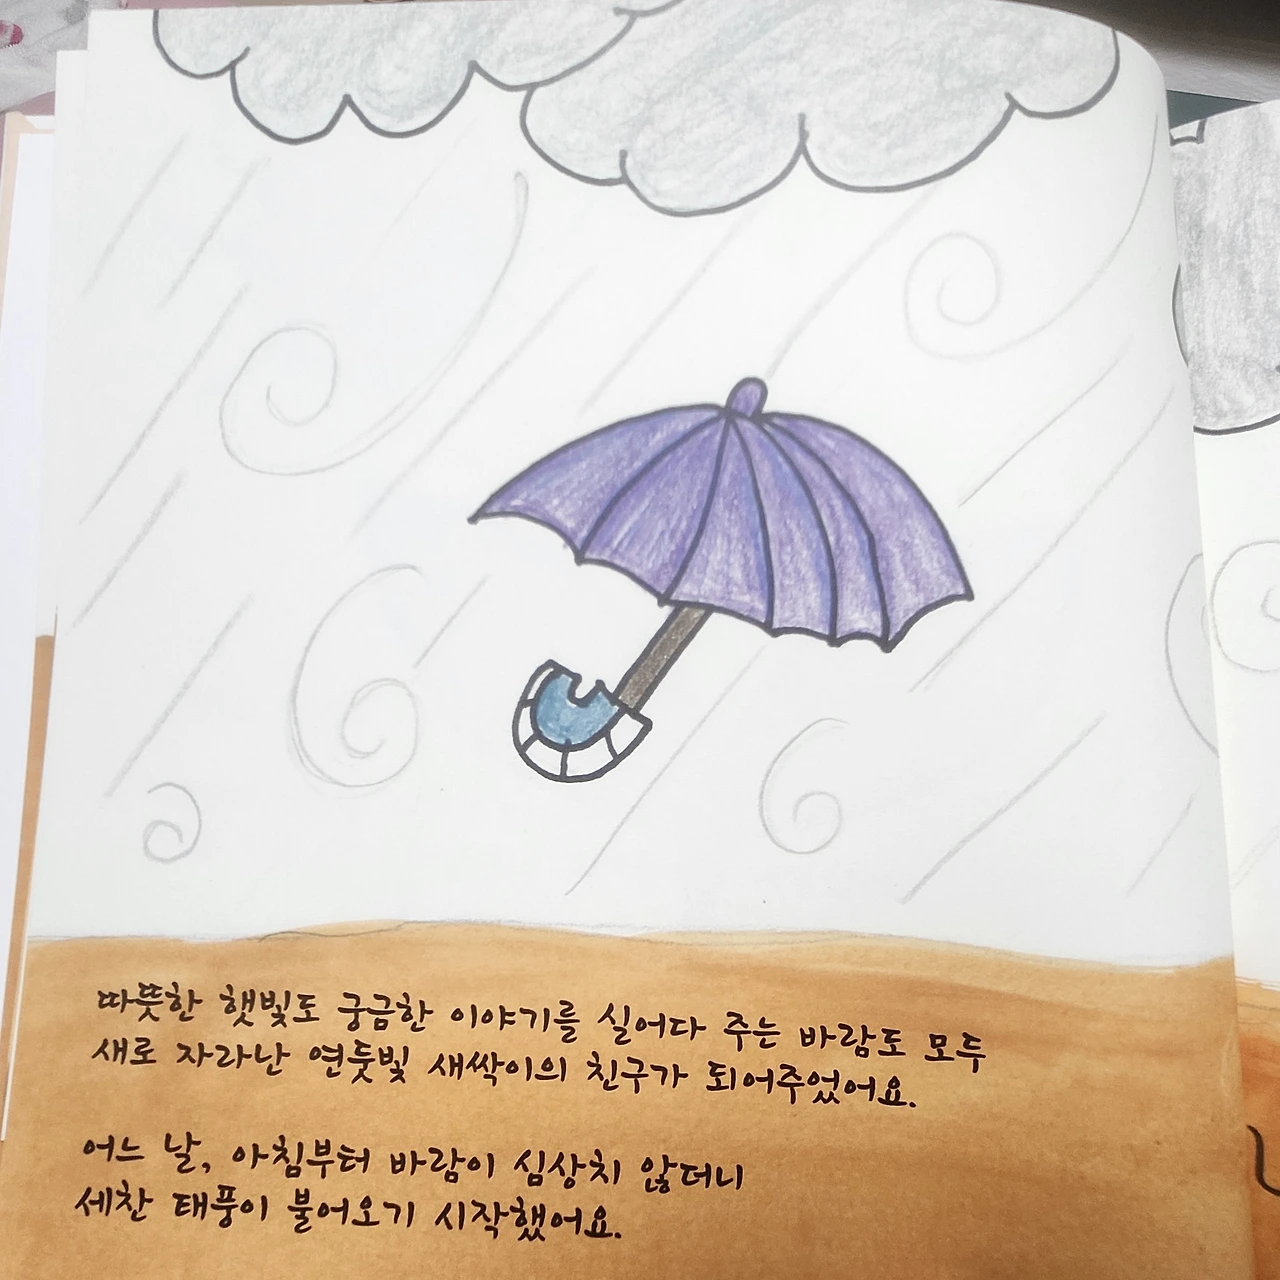 따뜻한 햇빛도 궁금한 이야기를 실어다 주는 바람도 모두
새로 자라난 연둣빛 새싹이의 친구가 되어주었어요.
어느 날, 아침부터 바람이 심상치 않더니
세찬 태풍이 불어오기 시작했어요.